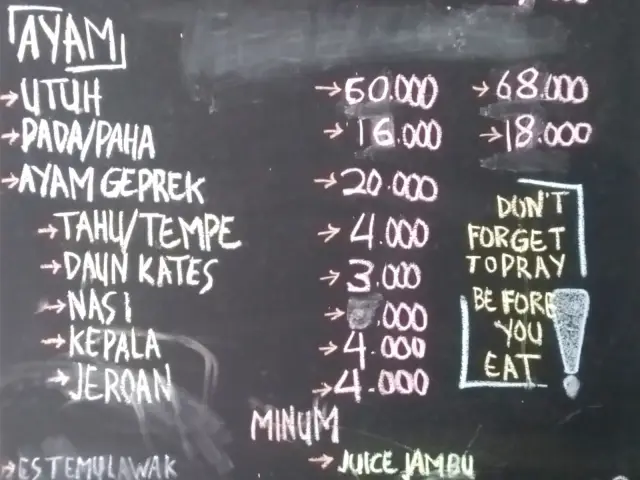 AYAM
→UTUH →60.000 →68.000
→DADA/PAHA →16.000 →18.000
→AYAM GEPREK →20.000
→TAHU/TEMPE →4.000
→DAUN KATES →3.000
→NASI → .000
→KEPALA →4.000
→JEROAN →4.000
DON'T
FORGET
TO PRAY
BEFORE
YOU
EAT !
MINUM
→ES TEMULAWAK →JUICE JAMBU